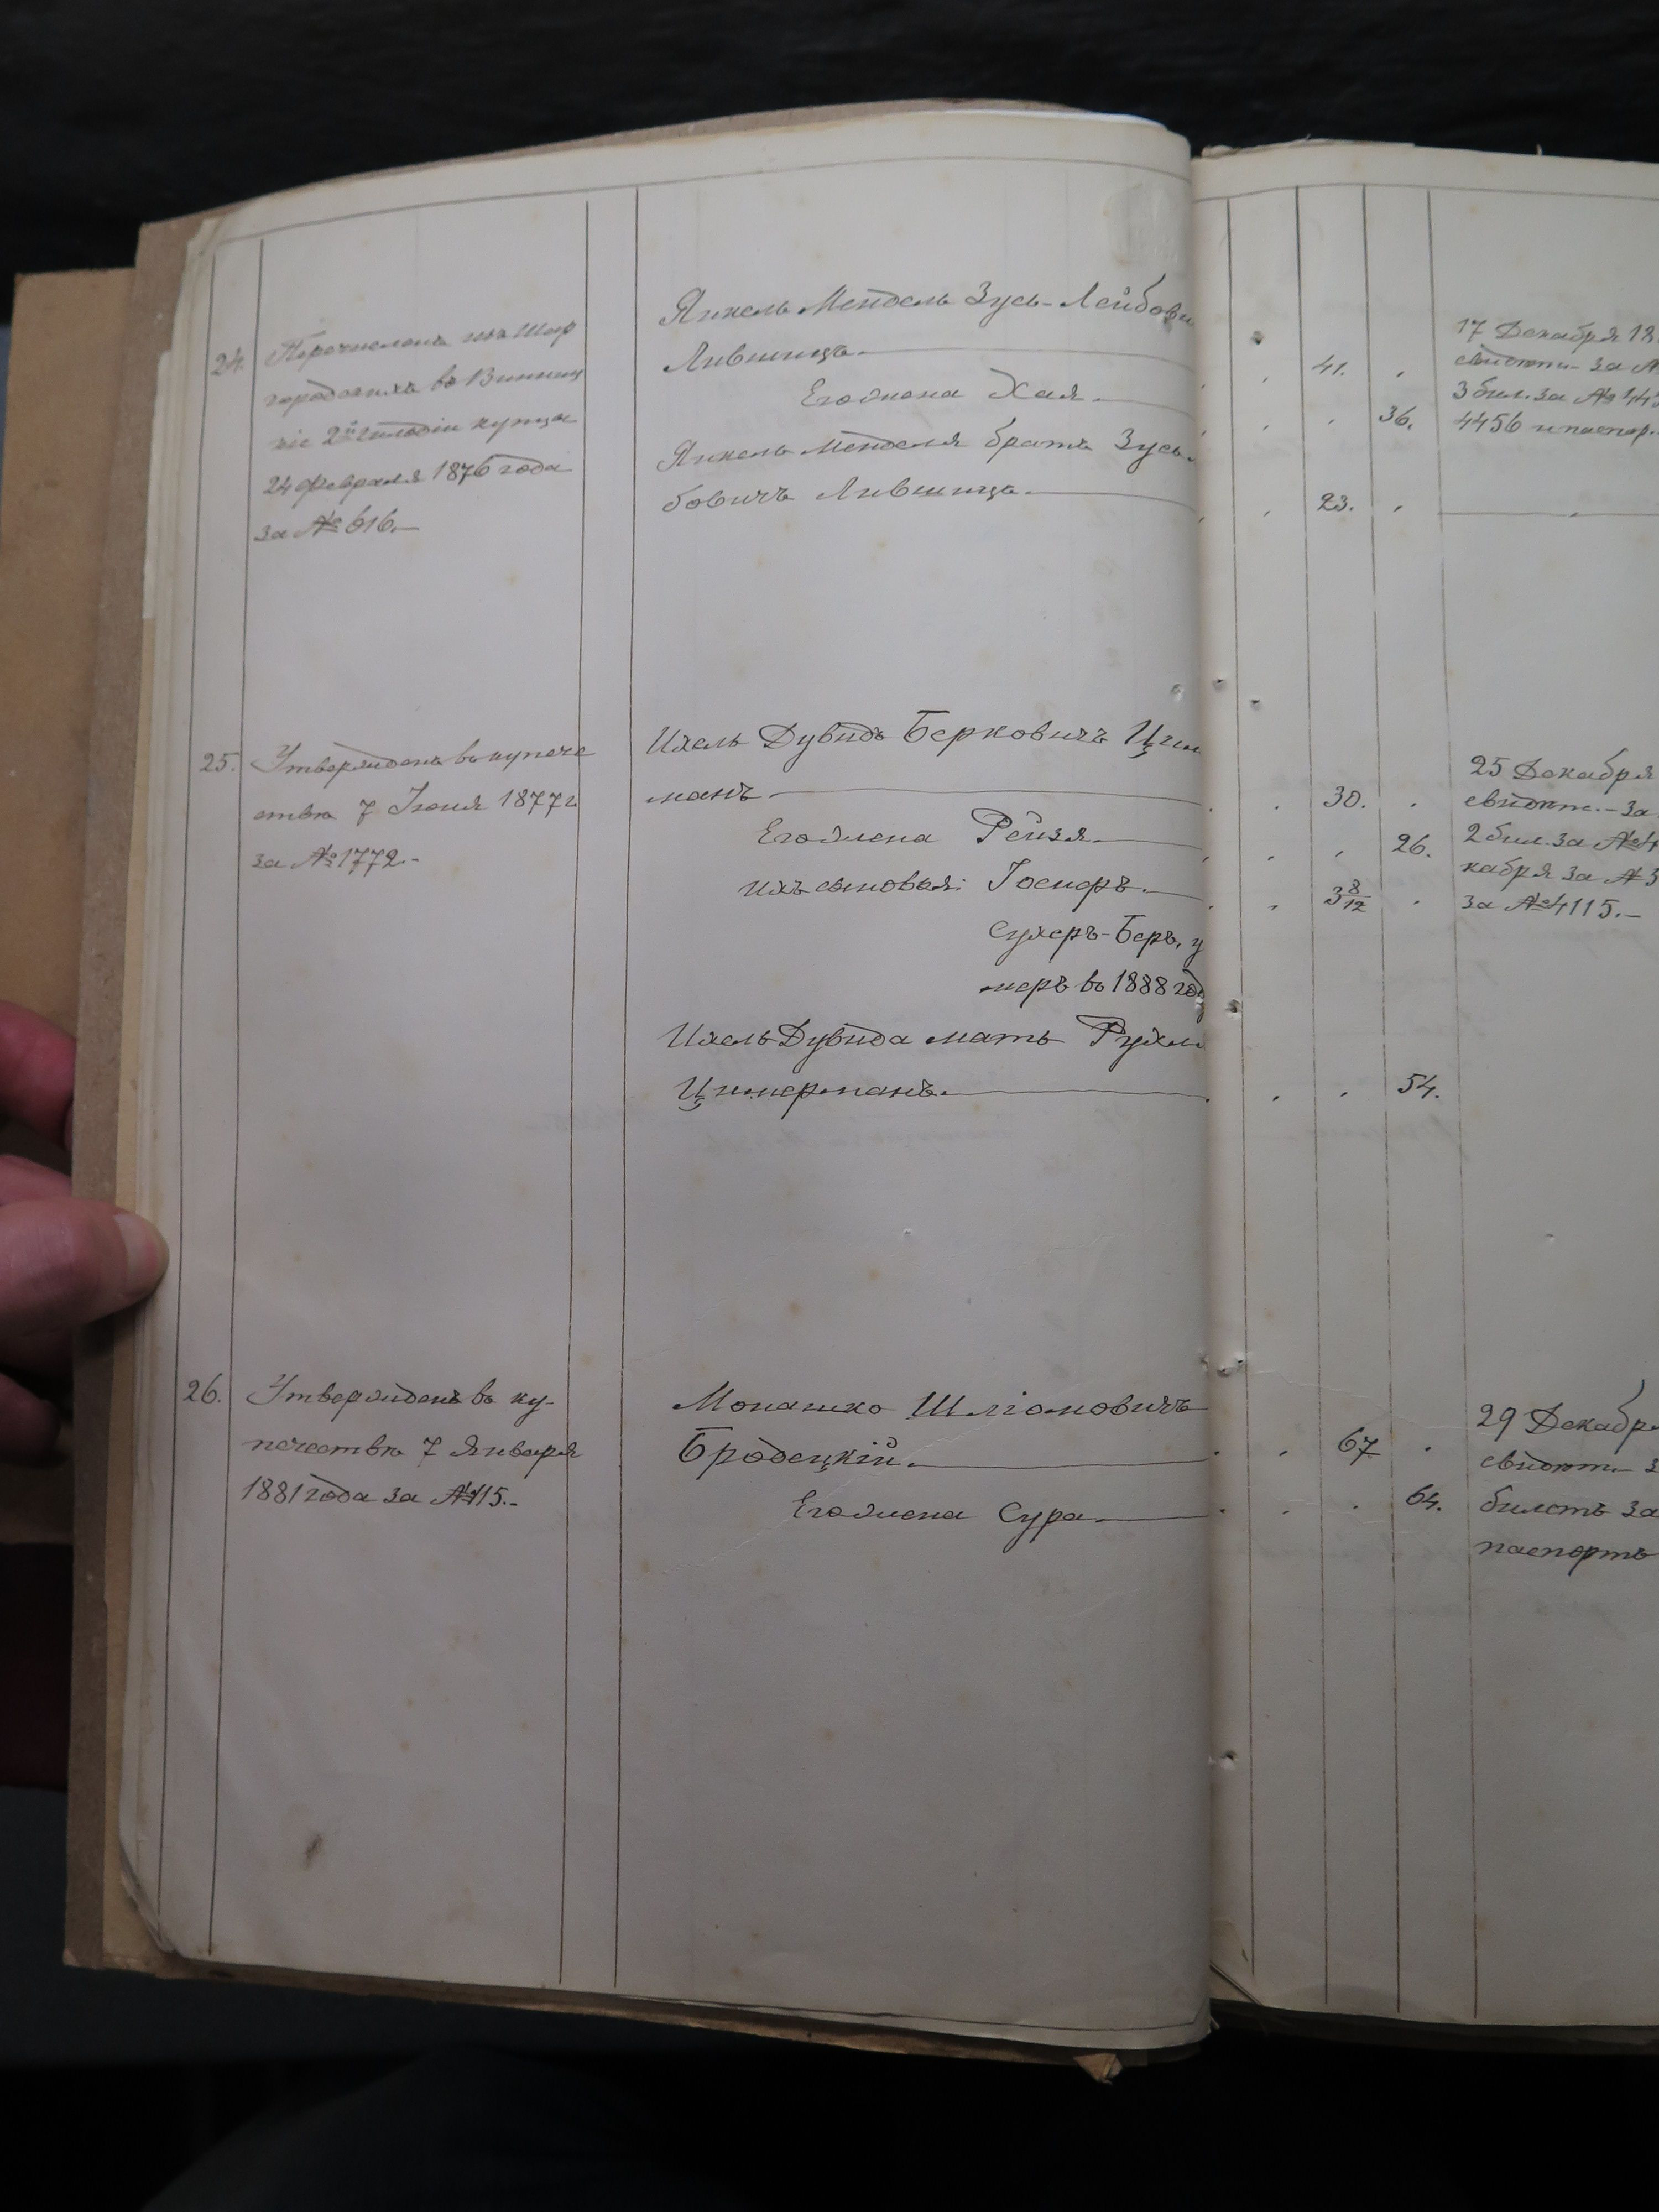 24.
Перечисленъ изъ Шар
городскихъ въ Винниц
кіе 2й гильдіи купцы
24 февраля 1876 года
за № 616.—
Янкель Мендель Зусь-Лейбови
Лившицъ.—
Его жена Хая.—
Янкель Менделя братъ Зусь-
бовичъ Лившицъ.—
41.
36.
23.
17 Декабря 18
свидѣт.- за №
3 бил. за № 443
4456 и паспор.
25.
Утвержденъ въ купече
ствѣ 7 Іюня 1877 г
за № 1772.-
Ихель Дувидъ Берковичъ Цим
манъ—
Его жена Рейзя.—
ихъ сыновья: Іосифъ.—
Сухеръ-Беръ, у
меръ въ 1888 год
Ихель Дувида мать Рухля
Цимерманъ.—
30.
26.
3 8/12
54.
25 Декабря
свидѣт.- за
2 бил. за № 4
кабря за № 3
за № 4115.-
26.
Утвержденъ въ ку-
печествѣ 7 Января
1881 года за № 115.-
Монашко Шліомовичъ
Бродецкій.—
Его жена Сура.—
67
64.
29 Декабр
свидѣт.- з
билетъ за
паспортъ